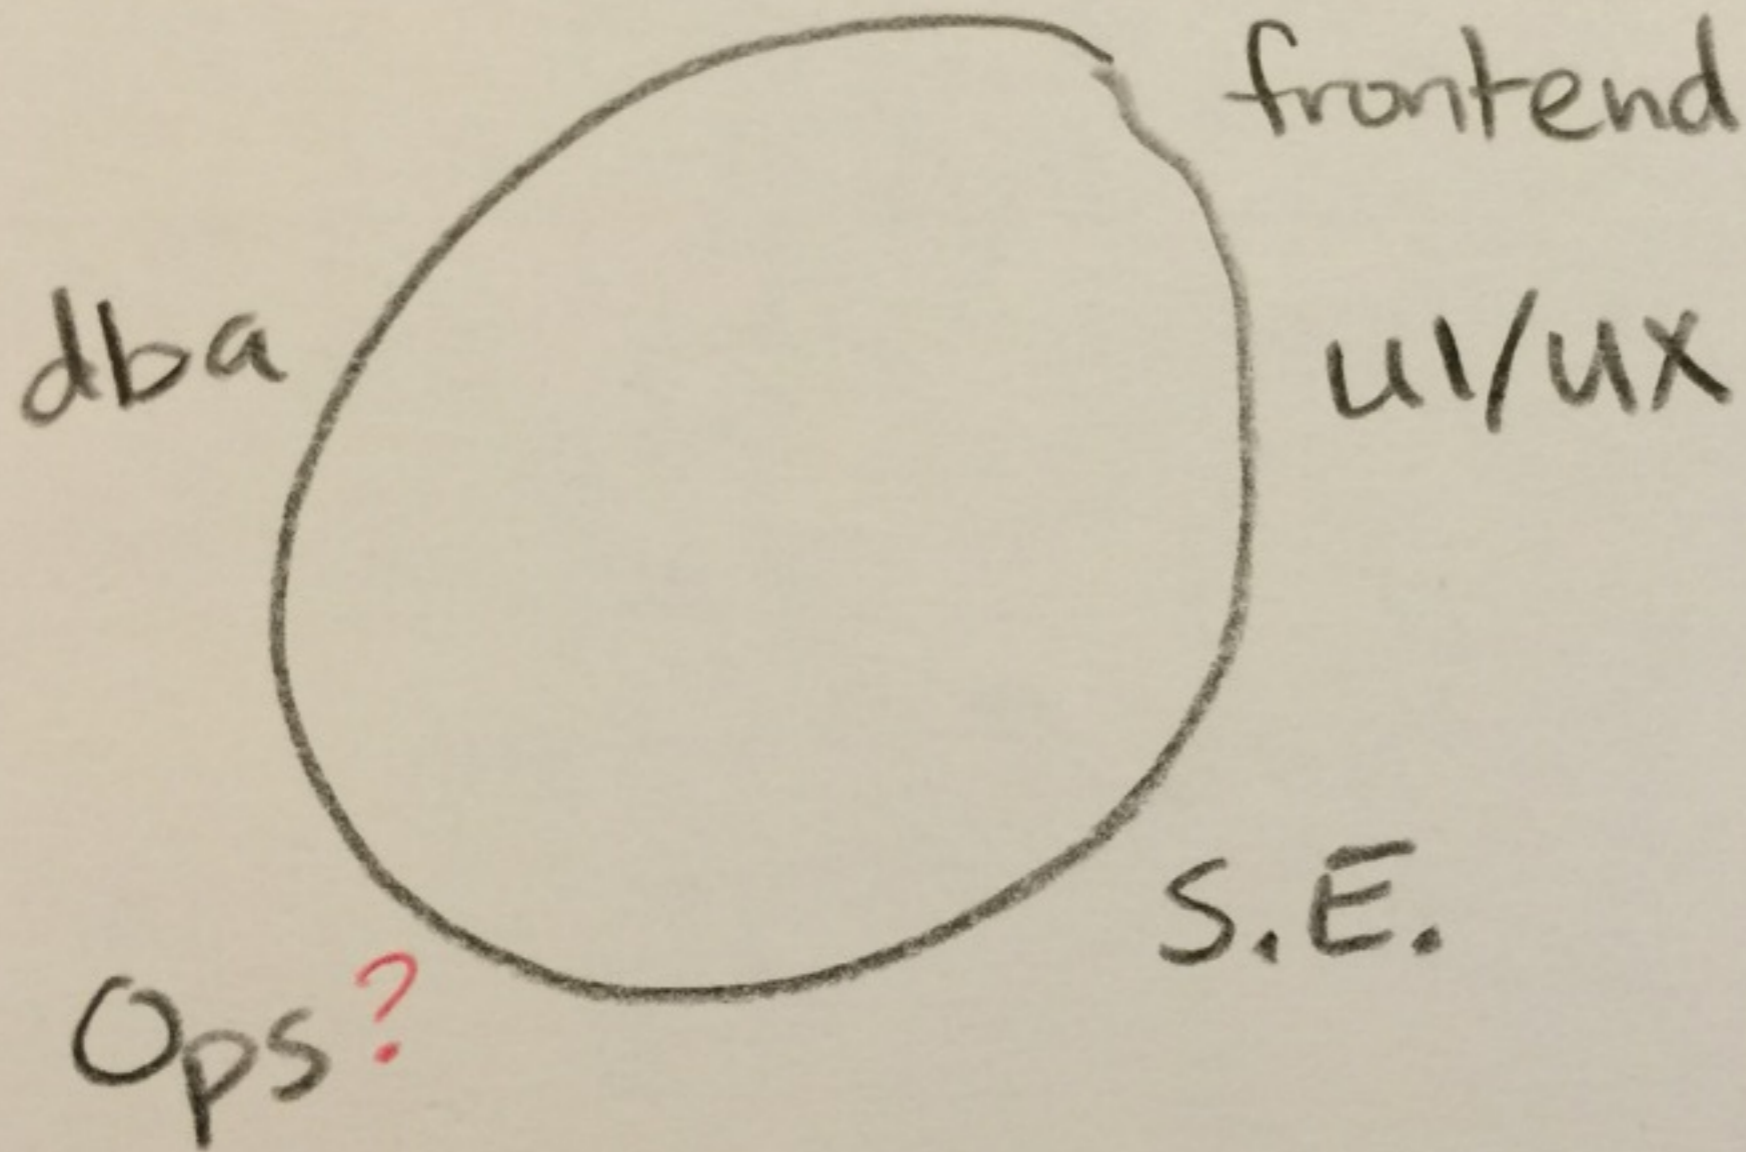 frontend
dba
UI/UX
S.E.
Ops?